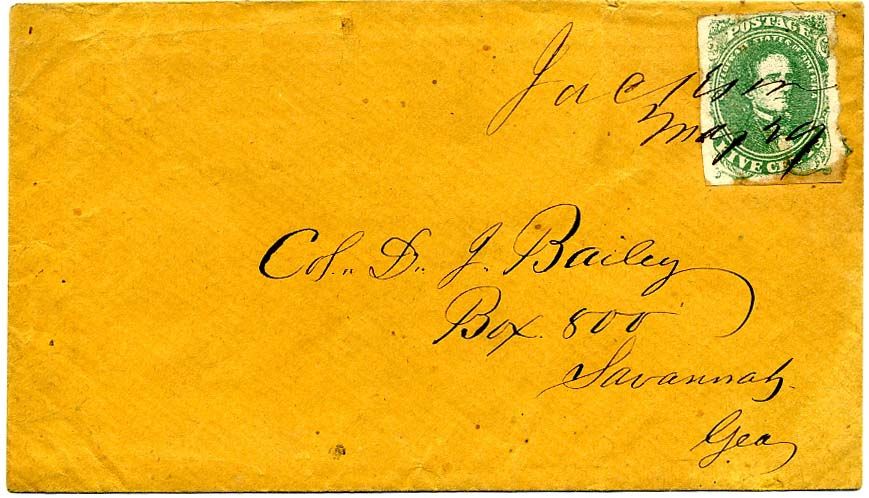 POSTAGE
CONFEDERATE STATES OF AMERICA
FIVE CENTS
Jackson
May 29
Col. D. J. Bailey
Box. 800
Savannah
Geo